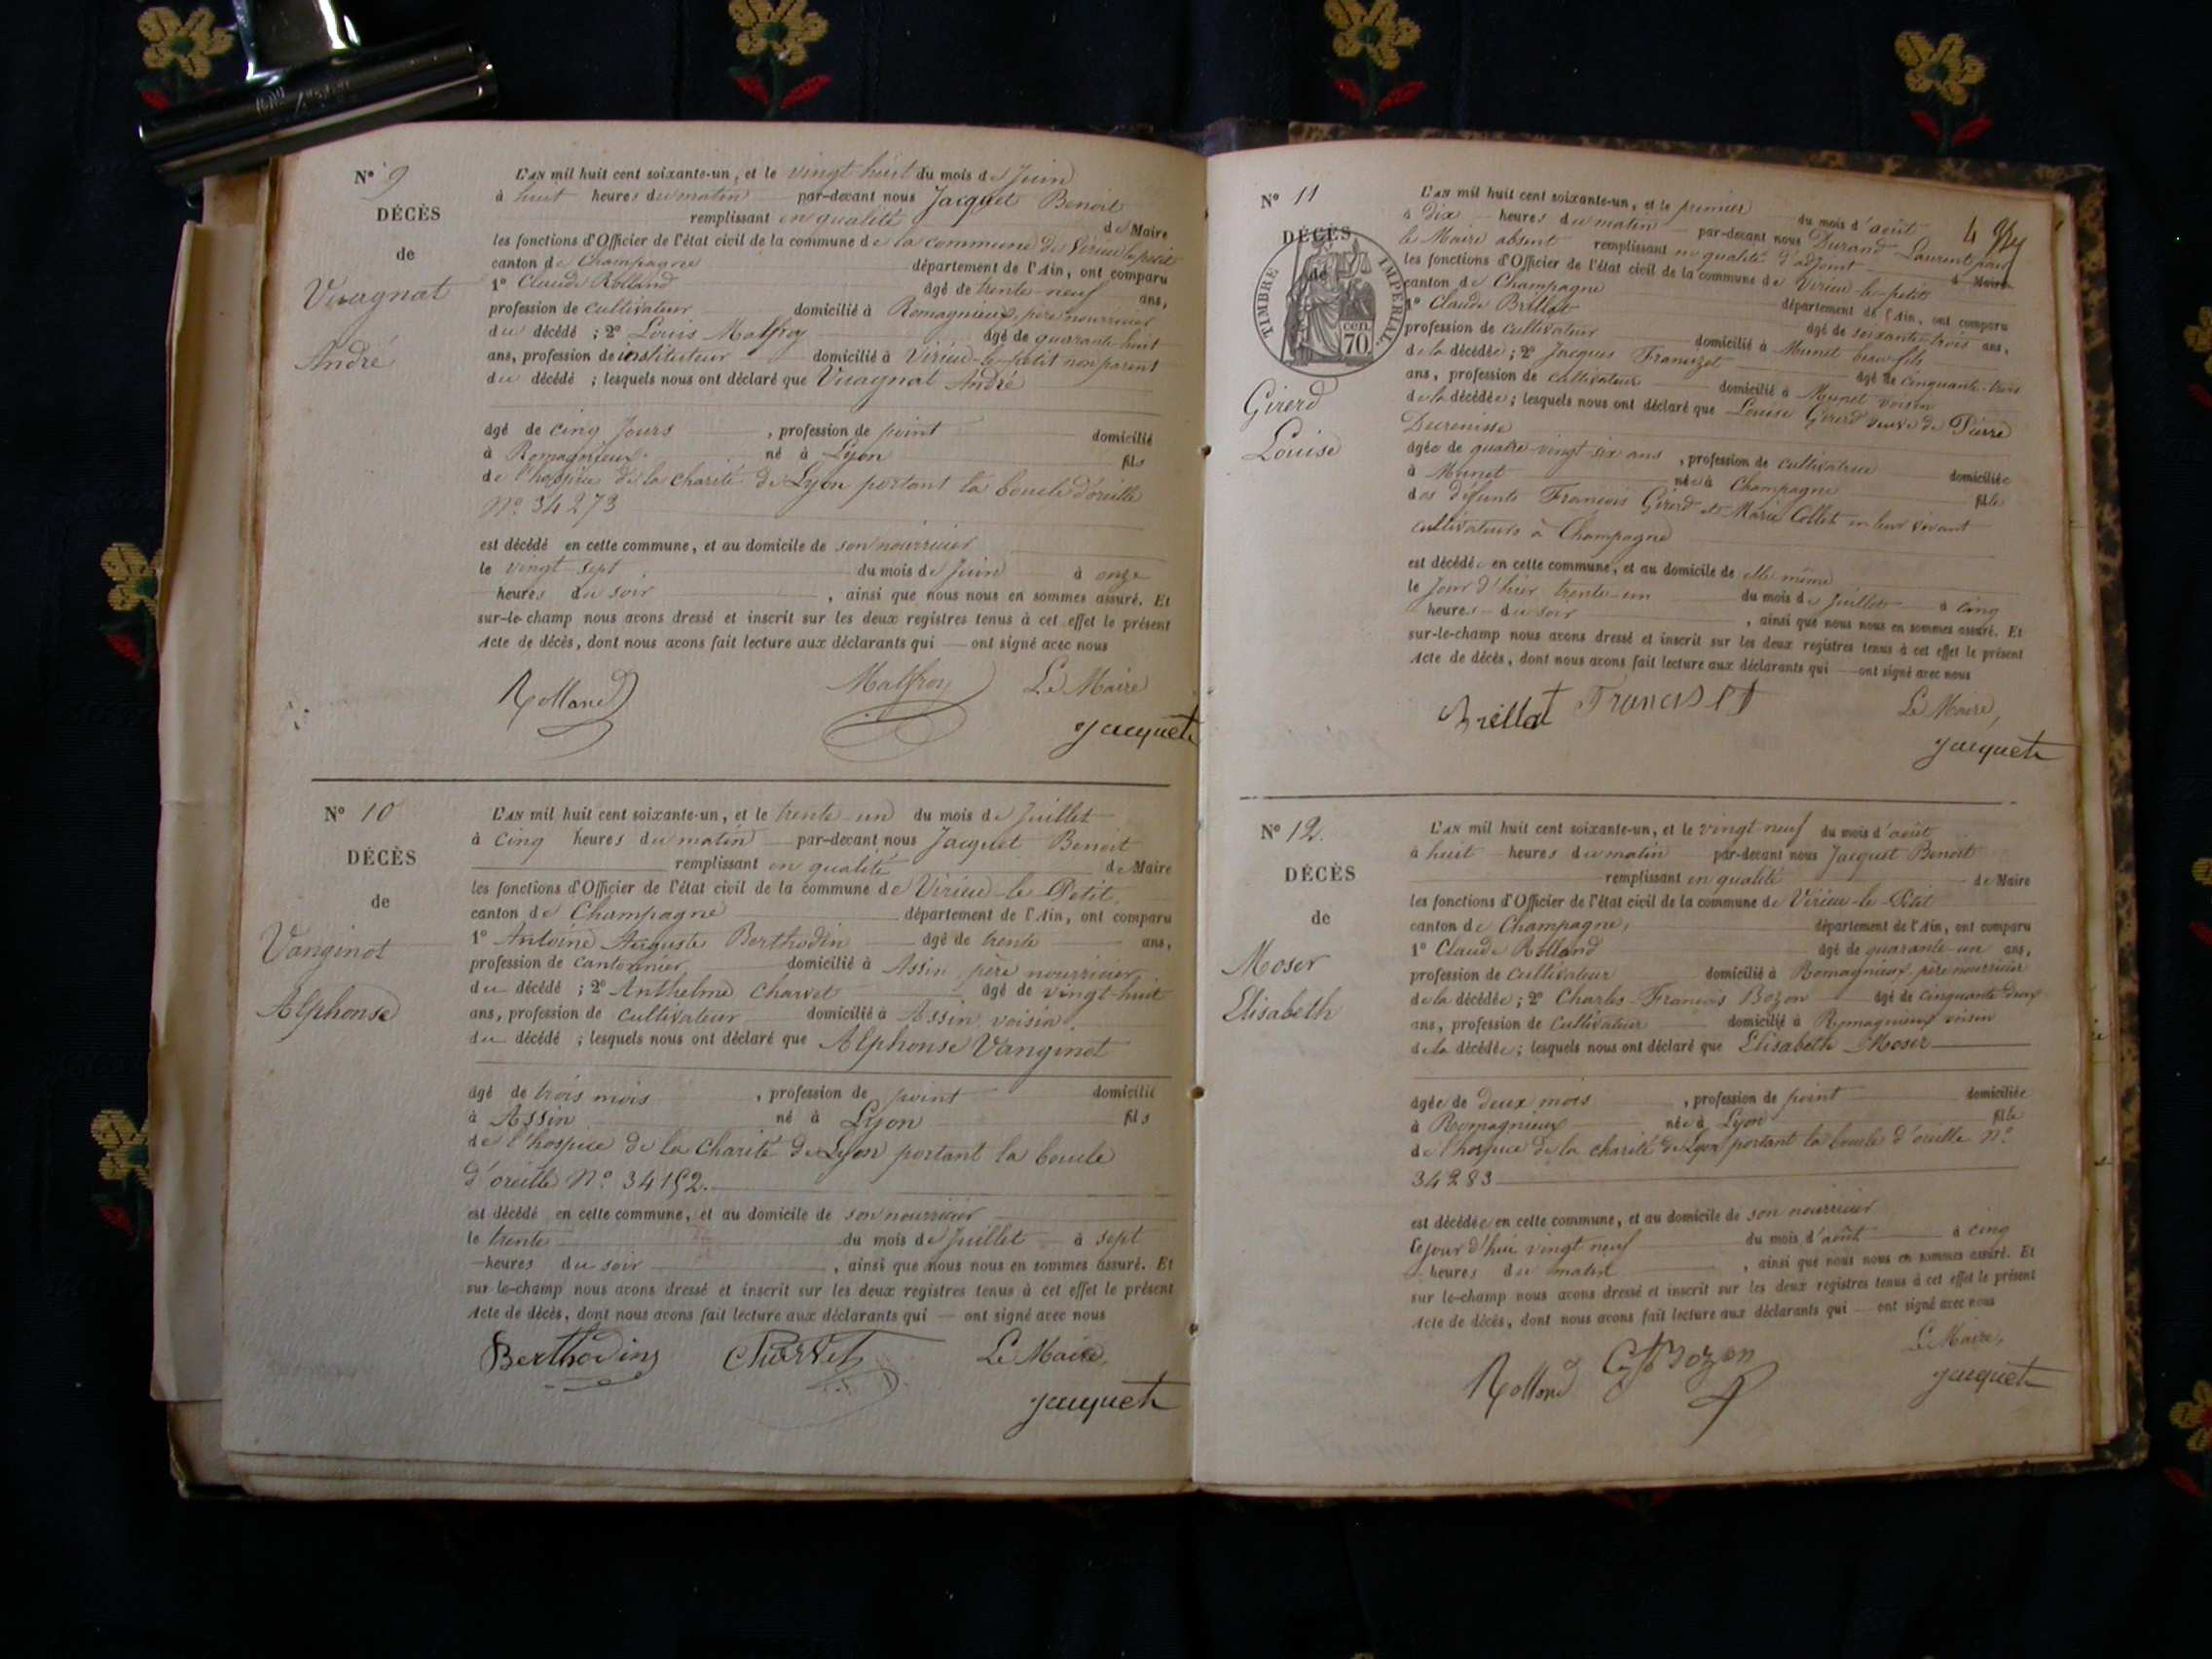 N° 9
DÉCÈS
de
André
L'AN mil huit cent soixante-un, et le vingt huit du mois de Juin
à huit heures du matin par-devant nous Jacquet Benoit
remplissant en qualité de Maire
les fonctions d'Officier de l'état civil de la commune de la commune de Virieu le petit
canton de Champagne département de l'Ain, ont comparu
1° Claude Rolland âgé de trente-neuf ans,
profession de cultivateur domicilié à Romagnieux, père nourricier
du décédé ; 2° Louis Malfroy âgé de quarante huit
ans, profession de instituteur domicilié à Virieu-le-petit non parent
du décédé ; lesquels nous ont déclaré que André
âgé de cinq jours , profession de point domicilié
à Romagnieux né à Lyon fils
de l'hospice de la charité de Lyon portant la boucle d'oreille
N° 34273
est décédé en cette commune, et au domicile de son nourricier
le vingt sept du mois de Juin à onze
heures du soir , ainsi que nous nous en sommes assuré. Et
sur-le-champ nous avons dressé et inscrit sur les deux registres tenus à cet effet le présent
Acte de décès, dont nous avons fait lecture aux déclarants qui ont signé avec nous
Rolland Malfroy Le Maire
Jacquet
N° 10
DÉCÈS
de
Vanginot
Alphonse
L'AN mil huit cent soixante-un, et le trente-un du mois de Juillet
à cinq heures du matin par-devant nous Jacquet Benoit
remplissant en qualité de Maire
les fonctions d'Officier de l'état civil de la commune de Virieu-le-Petit
canton de Champagne département de l'Ain, ont comparu
1° Antoine Auguste Berthodin âgé de trente ans,
profession de cantonnier domicilié à Assin, père nourricier
du décédé ; 2° Anthelme Charvet âgé de vingt-huit
ans, profession de cultivateur domicilié à Assin, voisin
du décédé ; lesquels nous ont déclaré que Alphonse Vanginot
âgé de trois mois , profession de point domicilié
à Assin né à Lyon fils
de l'hospice de la Charité de Lyon portant la boucle
d'oreille N° 34152.
est décédé en cette commune, et au domicile de son nourricier
le trente du mois de Juillet à sept
heures du soir , ainsi que nous nous en sommes assuré. Et
sur-le-champ nous avons dressé et inscrit sur les deux registres tenus à cet effet le présent
Acte de décès, dont nous avons fait lecture aux déclarants qui ont signé avec nous
Berthodin Charvet Le Maire,
Jacquet
N° 11
DÉCÈS
de
TIMBRE IMPÉRIAL
70 cen.
Girerd
Louise
L'AN mil huit cent soixante-un, et le premier du mois d'août
à dix heures du matin par-devant nous Durand Laurent pour
le Maire absent remplissant en qualité d'adjoint de Maire
les fonctions d'Officier de l'état civil de la commune de Virieu-le-petit
canton de Champagne département de l'Ain, ont comparu
1° Claude Brillat âgé de soixante-trois ans,
profession de cultivateur domicilié à Munet beau-fils
de la décédée ; 2° Jacques âgé de cinquante-trois
ans, profession de cultivateur domicilié à Munet voisin
de la décédée ; lesquels nous ont déclaré que Louise Girerd veuve de Pierre
âgée de quatre-vingt six ans , profession de cultivatrice domiciliée
à Munet née à Champagne fille
des défunts François Girerd et Marie Collet en leur vivant
cultivateurs à Champagne
est décédée en cette commune, et au domicile de elle même
le Jour d'hier trente-un du mois de Juillet à cinq
heures du soir , ainsi que nous nous en sommes assuré. Et
sur-le-champ nous avons dressé et inscrit sur les deux registres tenus à cet effet le présent
Acte de décès, dont nous avons fait lecture aux déclarants qui ont signé avec nous
Brillat Le Maire,
Jacquet
N° 12.
DÉCÈS
de
Moser
Elisabeth
L'AN mil huit cent soixante-un, et le vingt neuf du mois d'août
à huit heures du matin par-devant nous Jacquet Benoit
remplissant en qualité de Maire
les fonctions d'Officier de l'état civil de la commune de Virieu-le-Petit
canton de Champagne, département de l'Ain, ont comparu
1° Claude Rolland âgé de quarante-un ans,
profession de cultivateur domicilié à Romagnieux, père nourricier
de la décédée ; 2° Charles-François Bozon âgé de cinquante deux
ans, profession de cultivateur domicilié à Romagnieux voisin
de la décédée ; lesquels nous ont déclaré que Elisabeth Moser
âgée de deux mois , profession de point domiciliée
à Romagnieux née à Lyon fille
de l'hospice de la charité de Lyon portant la boucle d'oreille N°
34283
est décédée en cette commune, et au domicile de son nourricier
le jour d'hui vingt neuf du mois d'août à cinq
heures du matin , ainsi que nous nous en sommes assuré. Et
sur-le-champ nous avons dressé et inscrit sur les deux registres tenus à cet effet le présent
Acte de décès, dont nous avons fait lecture aux déclarants qui ont signé avec nous
Rolland Bozon Le Maire,
Jacquet